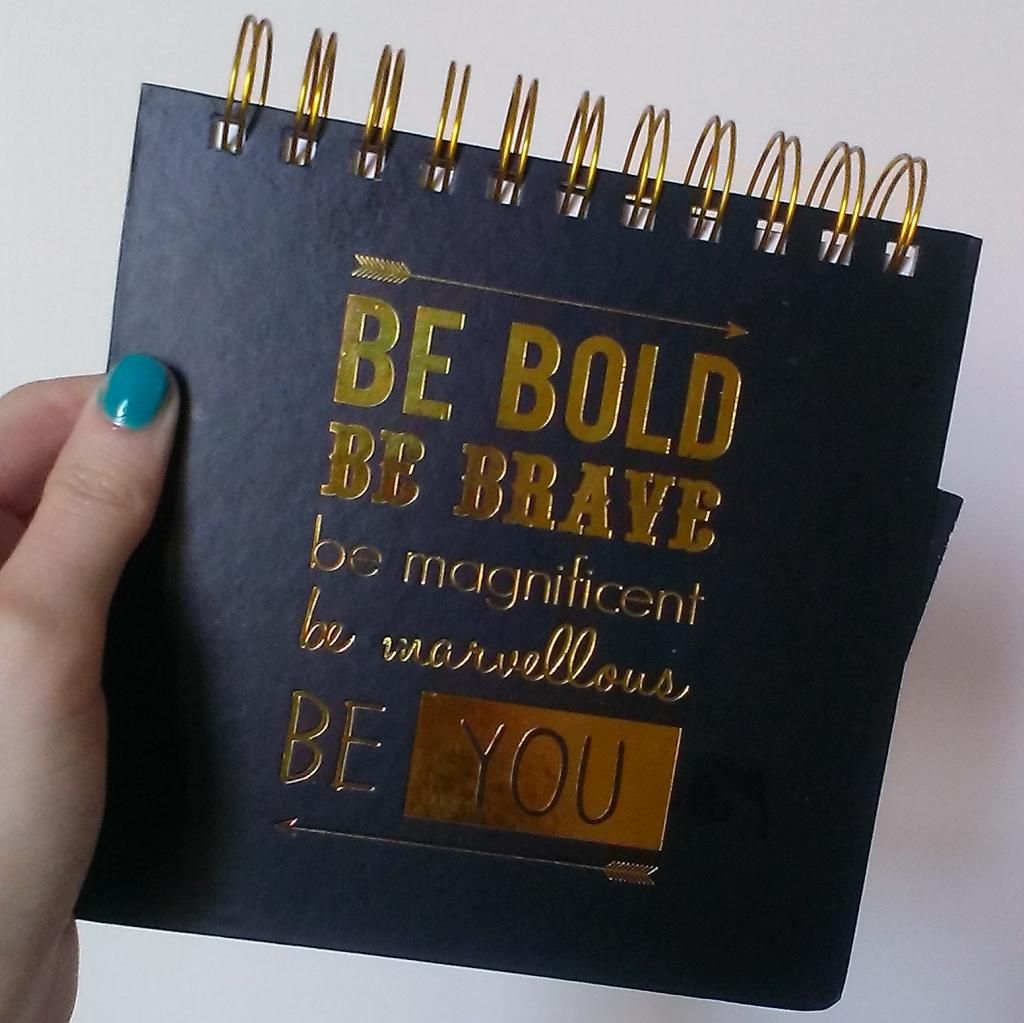 BE BOLD
BE BRAVE
be magnificent
be marvellous
BE YOU